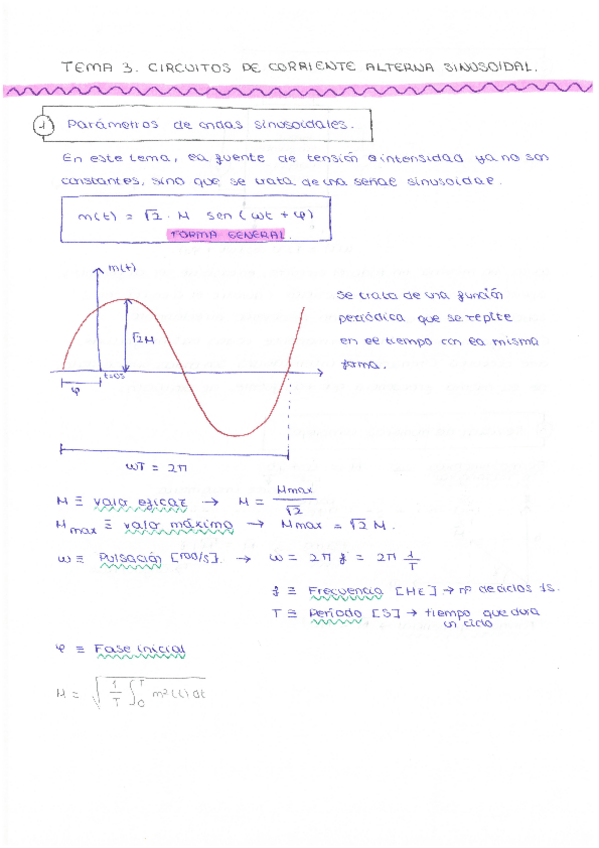 TEMA 3. CIRCUITOS DE CORRIENTE ALTERNA SINUSOIDAL.
1 Parámetros de ondas sinusoidales.
En este tema, la fuente de tensión o intensidad ya no son
constantes, sino que se trata de una señal sinusoidal.
m(t) = √2 · M sen (ωt + φ)
FORMA GENERAL.
m(t)
Se trata de una función
periódica que se repite
en el tiempo con la misma
forma.
√2M
t=0s
φ
ωT = 2π
M ≡ valor eficaz → M = Mmax/√2
Mmax ≡ valor máximo → Mmax = √2 M.
ω ≡ Pulsación [rad/s]. → ω = 2π f = 2π 1/T
f ≡ Frecuencia [Hz] → nº de ciclos 1s.
T ≡ Período [S] → tiempo que dura
un ciclo
φ ≡ Fase inicial
M = √(1/T ∫₀ᵀ m²(t) dt)